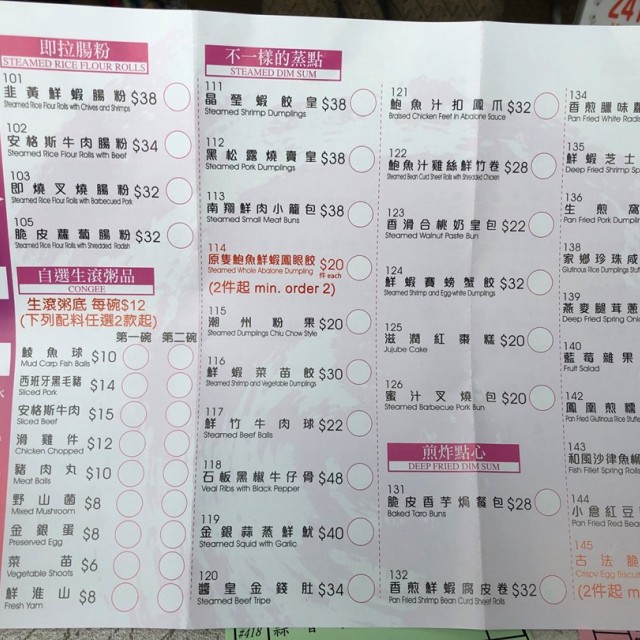 即拉腸粉
STEAMED RICE FLOUR ROLLS
101
韭黃鮮蝦腸粉 $38
Steamed Rice Flour Rolls with Chives and Shrimps
102
安格斯牛肉腸粉 $34
Steamed Rice Flour Rolls with Beef
103
即燒叉燒腸粉 $32
Steamed Rice Flour Rolls with Barbecued Pork
105
脆皮蘿蔔腸粉 $32
Steamed Rice Flour Rolls with Shredded Radish
自選生滾粥品
CONGEE
生滾粥底 每碗$12
(下列配料任選2款起)
第一碗 第二碗
鯪魚球 $10
Mud Carp Fish Balls
西班牙黑毛豬 $14
Sliced Pork
安格斯牛肉 $15
Sliced Beef
滑雞件 $12
Chicken Chopped
豬肉丸 $10
Meat Balls
野山菌 $8
Mixed Mushroom
金銀蛋 $8
Preserved Egg
菜苗 $6
Vegetable Shoots
鮮淮山 $8
Fresh Yarn
不一樣的蒸點
STEAMED DIM SUM
111
晶瑩蝦餃皇 $38
Steamed Shrimp Dumplings
112
黑松露燒賣皇 $38
Steamed Pork Dumplings
113
南翔鮮肉小籠包 $38
Steamed Small Meat Buns
114
原隻鮑魚鮮蝦鳳眼餃 $20
Steamed Whole Abalone Dumpling 件 each
(2件起 min. order 2)
115
潮州粉果 $20
Steamed Dumplings Chiu Chow Style
116
鮮蝦菜苗餃 $30
Steamed Shrimp and Vegetable Dumplings
117
鮮竹牛肉球 $22
Steamed Beef Balls
118
石板黑椒牛仔骨 $48
Veal Ribs with Black Pepper
119
金銀蒜蒸鮮魷 $40
Steamed Squid with Garlic
120
醬皇金錢肚 $34
Steamed Beef Tripe
121
鮑魚汁扣鳳爪 $32
Braised Chicken Feet in Abalone Sauce
122
鮑魚汁雞絲鮮竹卷 $28
Steamed Bean Curd Sheet Rolls with Shredded Chicken
123
香滑合桃奶皇包 $22
Steamed Walnut Paste Bun
124
鮮蝦賽螃蟹餃 $32
Steamed Shrimp and Egg-white Dumplings
125
滋潤紅棗糕 $20
Jujube Cake
126
蜜汁叉燒包 $20
Steamed Barbecue Pork Bun
煎炸點心
DEEP FRIED DIM SUM
131
脆皮香芋焗餐包 $28
Baked Taro Buns
132
香煎鮮蝦腐皮卷 $32
Pan Fried Shrimp Bean Curd Sheet Rolls
134
香煎臘味
Pan Fried White Radis
135
鮮蝦芝士
Deep Fried Shrimp Sp
136
生煎窩
Pan Fried Dumplings
138
家鄉珍珠咸
Glutinous Rice Dumplings
139
燕麥腿茸
Deep Fried Spring Onion
140
藍莓雜果
Fruit Salad
142
鳳凰煎糯
Pan Fried Glutinous Rice Stuffe
143
和風沙律魚
Fish Fillet Spring Rolls
144
小倉紅豆
Pan Fried Red Bean
145
古法脆
Crispy Egg Biscuit
(2件起 m
24
#418